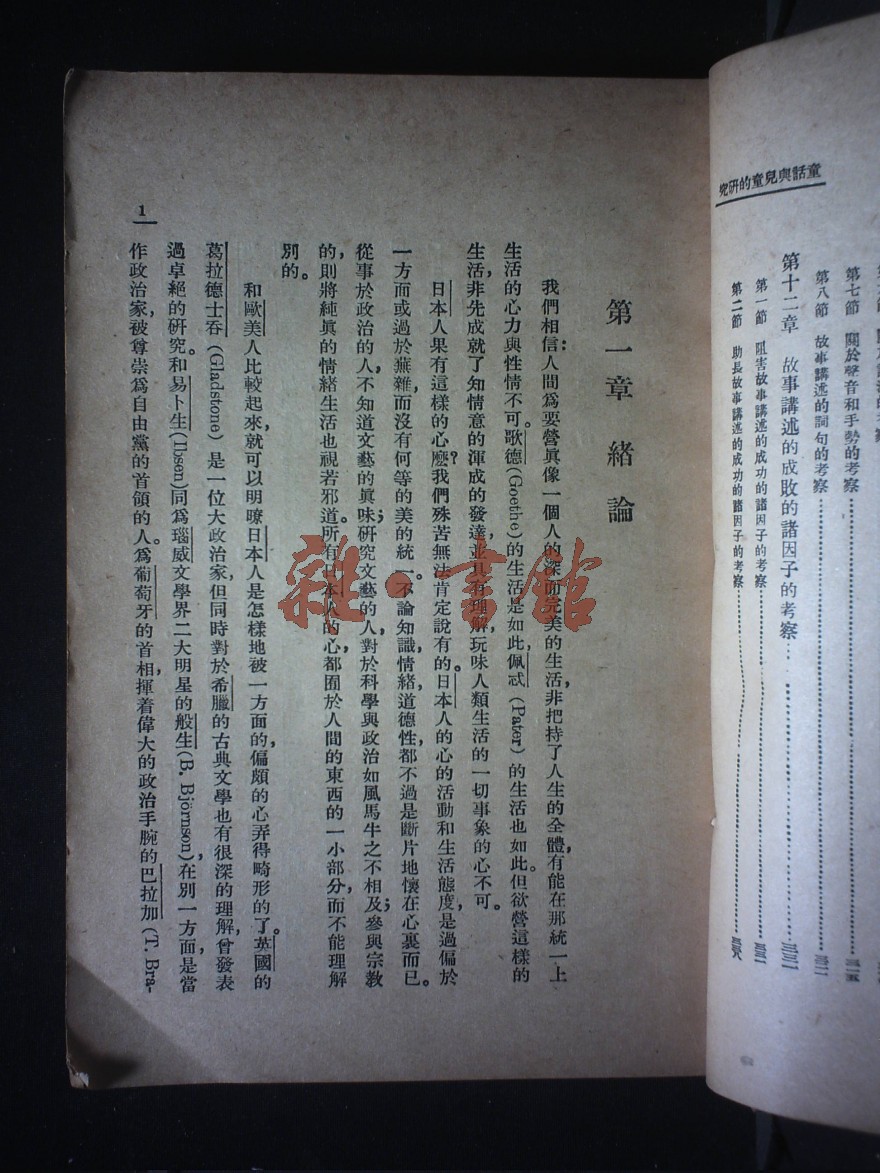 童話與兒童的研究
第七節 關於聲音和手勢的考察 三一五
第八節 故事講述的詞句的考察 三二一
第十二章 故事講述的成敗的諸因子的考察 三三一
第一節 阻害故事講述的成功的諸因子的考察 三三一
第二節 助長故事講述的成功的諸因子的考察 三三八
第一章 緒論
我們相信:人間爲要營眞像一個人的深而完美的生活,非把持了人生的全體,有能在那統一上
生活的心力與性情不可。歌德(Goethe)的生活是如此,佩忒(Pater)的生活也如此。但欲營這樣的
生活,非先成就了知情意的渾成的發達,並具有理解,玩味人類生活的一切事象的心不可。
日本人果有這樣的心麽?我們殊苦無法肯定說有的。日本人的心的活動和生活態度是過偏於
一方面或過於蕪雜,而沒有何等的美的統一。不論知識,情緒,道德性,都不過是斷片地懷在心裏而已。
從事於政治的人,不知道文藝的眞味;研究文藝的人,對於科學與政治如風馬牛之不相及;參與宗教
的,則將純眞的情緒生活也視若邪道。所有日本人的心,都囿於人間的東西的一小部分,而不能理解
別的。
和歐美人比較起來,就可以明瞭日本人是怎樣地被一方面的,偏頗的心弄得畸形的了。英國的
葛拉德士吞(Gladstone)是一位大政治家,但同時對於希臘的古典文學也有很深的理解,曾發表
過卓絕的研究。和易卜生(Ibsen)同爲瑙威文學界二大明星的般生(B. Björnson),在別一方面是當
作政治家,被尊崇爲自由黨的首領的人。爲葡萄牙的首相,揮着偉大的政治手腕的巴拉加(T. Bra-
1
雜·書館